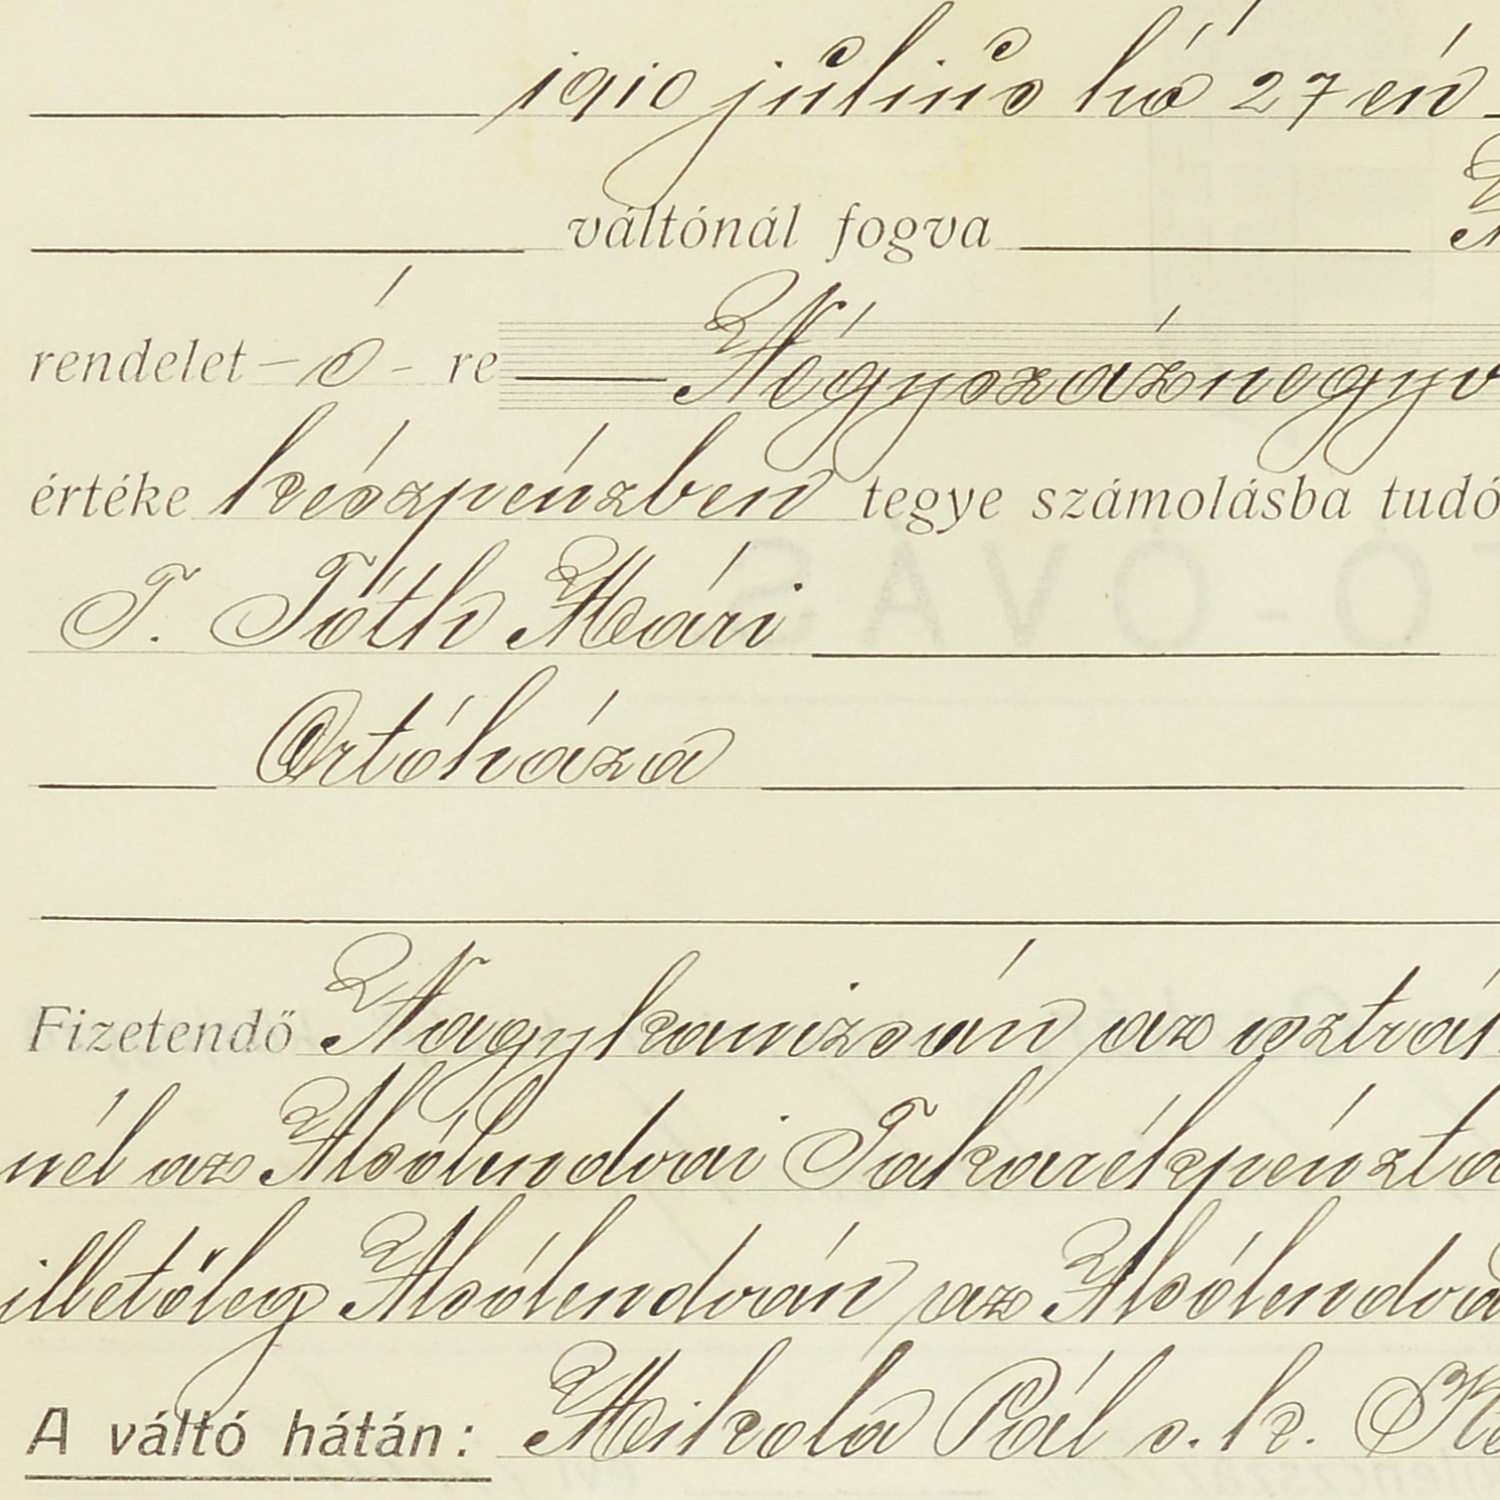 1910 július hó 27 én
váltónál fogva
rendelet - ő - re Négyszáznegyv
értéke készpénzben tegye számolásba tudó
T. Tóth Mári
Ortóháza
Fizetendő Nagykanizsán az osztrák
nél az Alsólendvai Takarékpénztá
illetőleg Alsólendván az Alsólendva
A váltó hátán: Mikola Pál s. k.